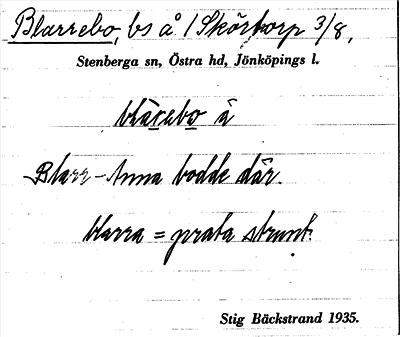 Blarrebo, bs å 1 Skörtorp 3/8,
Stenberga sn, Östra hd, Jönköpings l.
blàrebo å
Blarr-Anna bodde där.
blarra = prata strunt.
Stig Bäckstrand 1935.